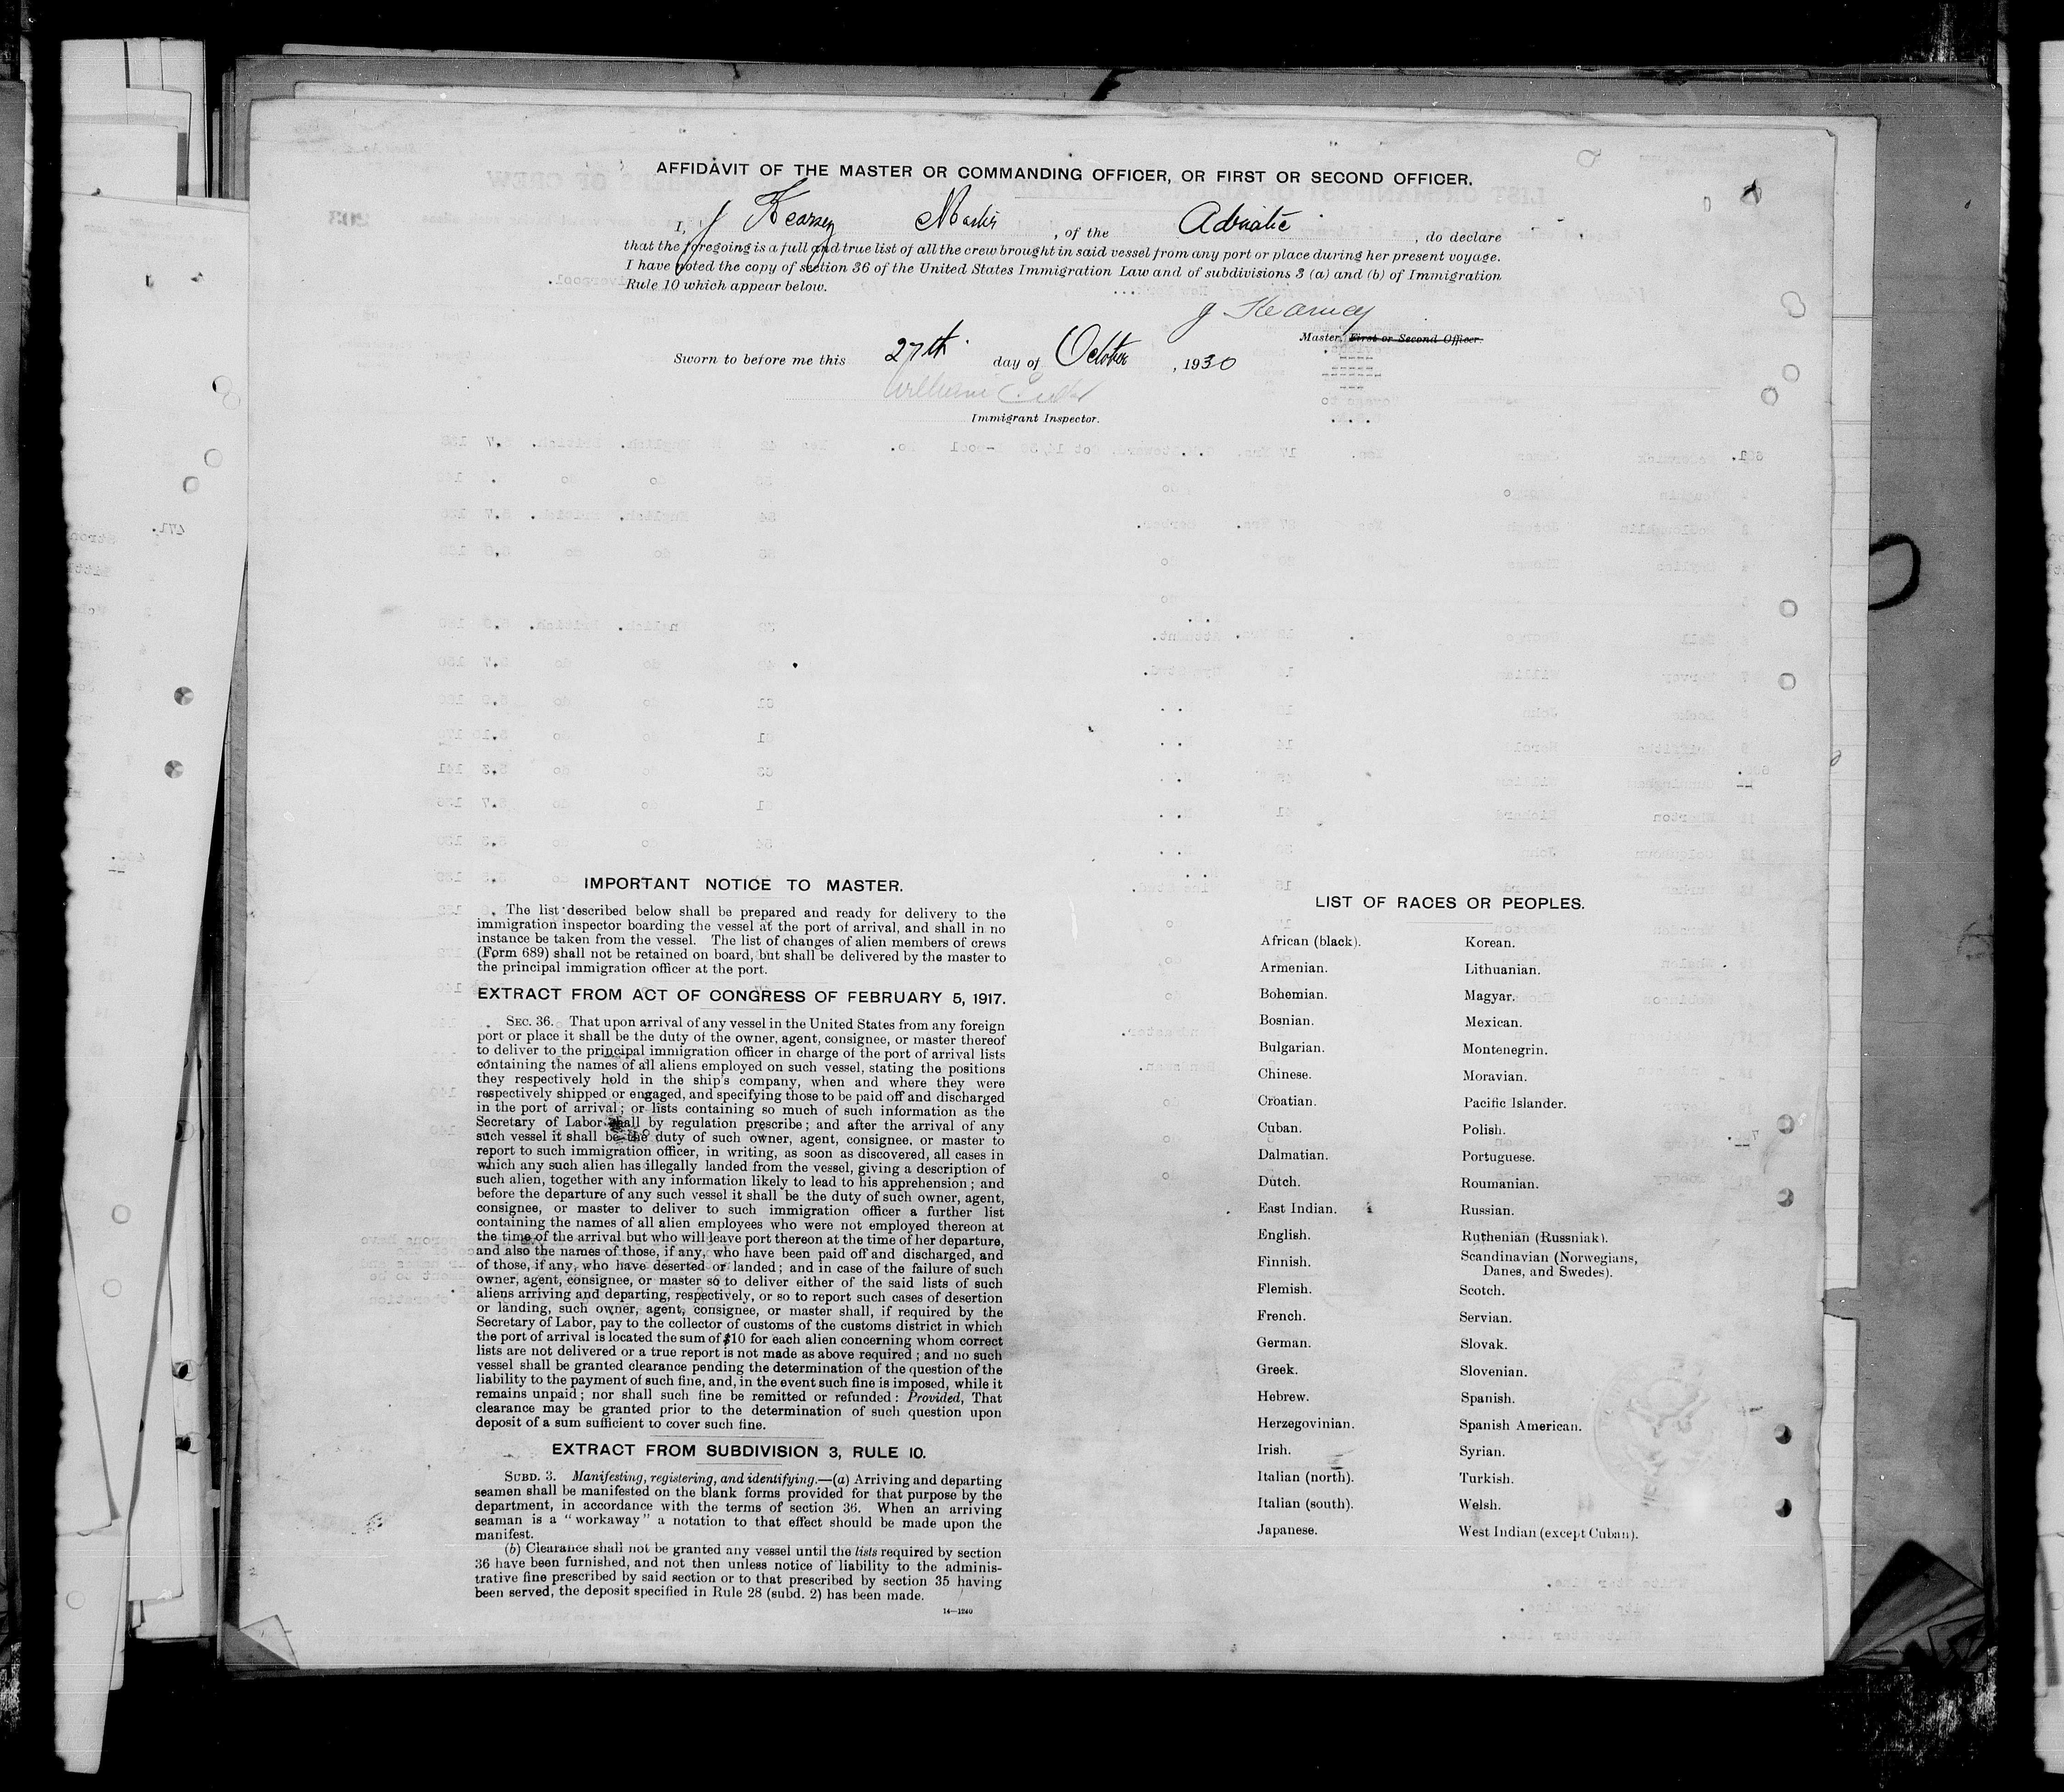 AFFIDAVIT OF THE MASTER OR COMMANDING OFFICER, OR FIRST OR SECOND OFFICER.
I, J Kearney Master, of the Adriatic, do declare
that the foregoing is a full and true list of all the crew brought in said vessel from any port or place during her present voyage.
I have noted the copy of section 36 of the United States Immigration Law and of subdivisions 3 (a) and (b) of Immigration
Rule 10 which appear below.
J Kearney
Master, First or Second Officer.
Sworn to before me this 27th day of October, 1930
William
Immigrant Inspector.
IMPORTANT NOTICE TO MASTER.
The list described below shall be prepared and ready for delivery to the
immigration inspector boarding the vessel at the port of arrival, and shall in no
instance be taken from the vessel. The list of changes of alien members of crews
(Form 689) shall not be retained on board, but shall be delivered by the master to
the principal immigration officer at the port.
EXTRACT FROM ACT OF CONGRESS OF FEBRUARY 5, 1917.
SEC. 36. That upon arrival of any vessel in the United States from any foreign
port or place it shall be the duty of the owner, agent, consignee, or master thereof
to deliver to the principal immigration officer in charge of the port of arrival lists
containing the names of all aliens employed on such vessel, stating the positions
they respectively hold in the ship's company, when and where they were
respectively shipped or engaged, and specifying those to be paid off and discharged
in the port of arrival; or lists containing so much of such information as the
Secretary of Labor shall by regulation prescribe; and after the arrival of any
such vessel it shall be the duty of such owner, agent, consignee, or master to
report to such immigration officer, in writing, as soon as discovered, all cases in
which any such alien has illegally landed from the vessel, giving a description of
such alien, together with any information likely to lead to his apprehension; and
before the departure of any such vessel it shall be the duty of such owner, agent,
consignee, or master to deliver to such immigration officer a further list
containing the names of all alien employees who were not employed thereon at
the time of the arrival but who will leave port thereon at the time of her departure,
and also the names of those, if any, who have been paid off and discharged, and
of those, if any, who have deserted or landed; and in case of the failure of such
owner, agent, consignee, or master so to deliver either of the said lists of such
aliens arriving and departing, respectively, or so to report such cases of desertion
or landing, such owner, agent, consignee, or master shall, if required by the
Secretary of Labor, pay to the collector of customs of the customs district in which
the port of arrival is located the sum of $10 for each alien concerning whom correct
lists are not delivered or a true report is not made as above required; and no such
vessel shall be granted clearance pending the determination of the question of the
liability to the payment of such fine, and, in the event such fine is imposed, while it
remains unpaid; nor shall such fine be remitted or refunded: Provided, That
clearance may be granted prior to the determination of such question upon
deposit of a sum sufficient to cover such fine.
EXTRACT FROM SUBDIVISION 3, RULE 10.
SUBD. 3. Manifesting, registering, and identifying.—(a) Arriving and departing
seamen shall be manifested on the blank forms provided for that purpose by the
department, in accordance with the terms of section 36. When an arriving
seaman is a "workaway" a notation to that effect should be made upon the
manifest.
(b) Clearance shall not be granted any vessel until the lists required by section
36 have been furnished, and not then unless notice of liability to the adminis-
trative fine prescribed by said section or to that prescribed by section 35 having
been served, the deposit specified in Rule 28 (subd. 2) has been made.
14—1240
LIST OF RACES OR PEOPLES.
African (black).
Armenian.
Bohemian.
Bosnian.
Bulgarian.
Chinese.
Croatian.
Cuban.
Dalmatian.
Dutch.
East Indian.
English.
Finnish.
Flemish.
French.
German.
Greek.
Hebrew.
Herzegovinian.
Irish.
Italian (north).
Italian (south).
Japanese.
Korean.
Lithuanian.
Magyar.
Mexican.
Montenegrin.
Moravian.
Pacific Islander.
Polish.
Portuguese.
Roumanian.
Russian.
Ruthenian (Russniak).
Scandinavian (Norwegians,
Danes, and Swedes).
Scotch.
Servian.
Slovak.
Slovenian.
Spanish.
Spanish American.
Syrian.
Turkish.
Welsh.
West Indian (except Cuban).